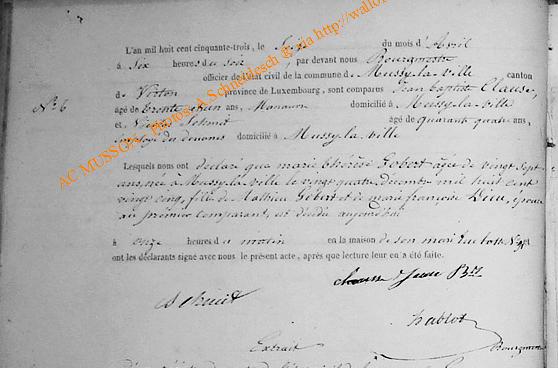 L'an mil huit cent cinquante-trois, le du mois d'Avril
à Six heures du Soir, par devant nous Bourgmestre
officier de l'état civil de la commune de Mussy-la-ville canton
N° 6 de Virton province de Luxembourg, sont comparus Jean baptiste Clausse,
âgé de trente ans, domicilié à Mussy-la-ville
et Nicolas Schmit âgé de quarante quatre ans,
employé des douanes domicilié à Mussy-la-ville
Lesquels nous ont déclaré que marie thérèse Gobert agée de vingt Sept
ans, née à Mussy-la-ville le vingt quatre décembre mil huit cent
vingt cinq, fille de Mathieu Gobert et de marie françoise épouse
au premier comparant, est décédée aujourd'hui
à onze heures du matin en la maison de son mari
ont les déclarants signé avec nous le présent acte, après que lecture leur en a été faite.
Schmit
Bourgmestre
Extrait
AC MUSSON - Photos: A.Schneidesch © via http://wallo